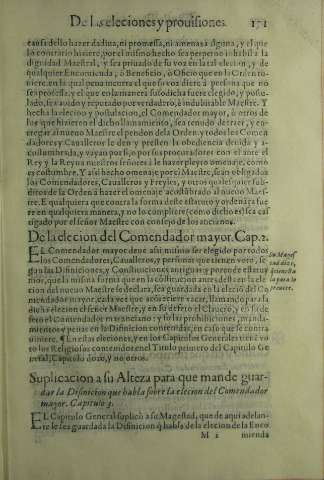 De las eleciones y prouisiones. 171
causa dello hazer dadiua, ni promessa, ni amenaza alguna, y el que
lo contrario hiziere, por el mismo hecho sea perpetuo inhabil a la
dignidad Maestral, y sea priuado de su voz en la tal elecion, y de
qualquier Encomienda, ò Beneficio, ò Oficio que en la Orden tu-
uiere. en la qual pena incurra el que su voz diere à persona que no
sea professa, y el que en la manera susodicha fuere elegido, y postu-
lado, sea auido y reputado por verdadero, è indubitable Maestre. Y
hecha la elecion y postulacion, el Comendador mayor, ò otros de
los que hizieron el dicho llamamiento, sea tenudo de traer, y en-
tregar al nueuo Maestre el pendon de la Orden. y todos los Comen
dadores y Caualleros le den y presten la obediencia deuida y a-
costumbrada, y vayan por si, o por sus procuradores con el ante el
Rey y la Reyna nuestros señores à le hazer pleyto omenaje, como
es costumbre. Y assi hecho omenaje por el Maestre, sean obligados
los Comendadores, Caualleros y Freyles, y otros qualesquier subdi-
tos de la Orden à hazer el omenaje acostumbrado al nueuo Maes-
tre. E qualquiera que contra la forma deste estatuto y ordenança fue
re en qualquiera manera, y no lo cumpliere (como dicho es) sea cas
tigado por el señor Maestre con consejo de los ancianos.
De la elecion del Comendador mayor. Cap. 2.
EL Comendador mayor deue assi mismo ser elegido por todos
los Comendadores, Caualleros, y personas que tienen voto, se
gun las Difiniciones, y Constituciones antiguas: y porende estatuy
mos, que la misma forma que en la constitucion antes desta en la elec
cion del nueuo Maestre se declara, sea guardada en la elecion del Co
mendador mayor, cada vez que acaeciere vacar, llamando para la
dicha elecion el señor Maestre, y en su defeto el Clauero, y en su de
feto el Comendador mas anciano: y so las prohibiciones, manda-
mientos y penas en la Difinicion contenidas, en caso que se contra
uiniere. ¶ En estas eleciones, y en los Capitulos Generales tienen vo
to los Religiosos contenidos en el Titulo primero del Capitulo Ge
neral, Capitulo doze, y no otros.
Suplicacion a su Alteza para que mande guar-
dar la Difinicion que habla sobre la elecion del Comendador
mayor. Capitulo 3.
EL Capitulo General suplicò a su Magestad, que de aqui adelan-
te le sea guardada la Difinicion q̃ habla de la elecion de la Enco
M 2 mienda